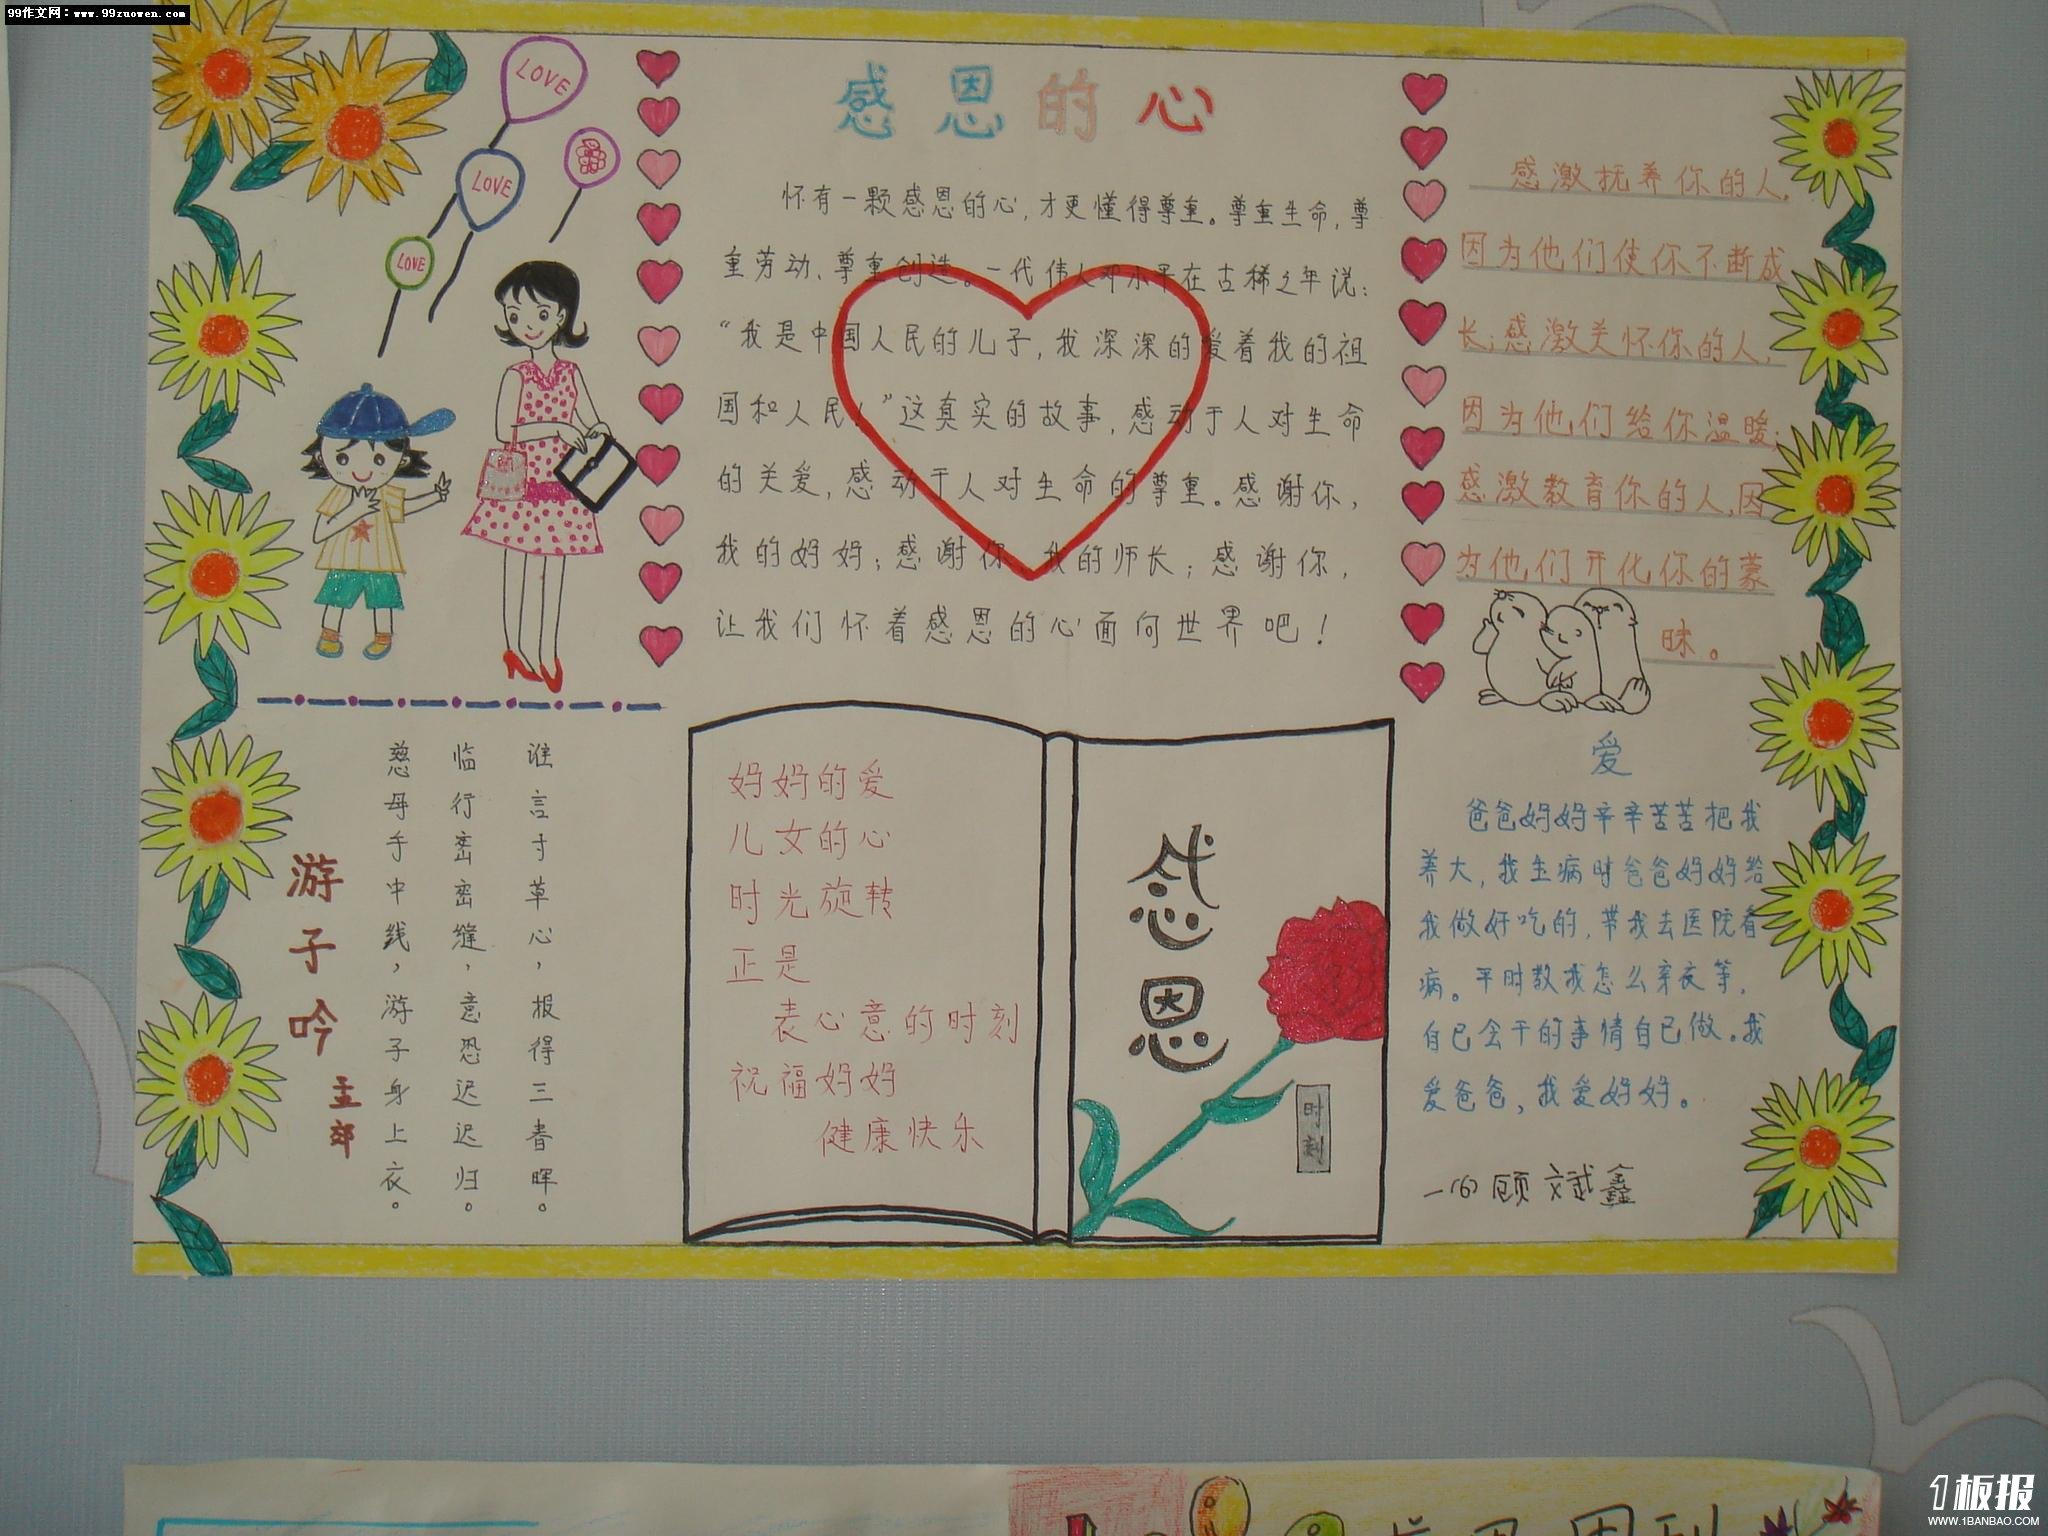 99作文网：www.99zuowen.com
LOVE
LOVE
LOVE
感恩的心
怀有一颗感恩的心,才更懂得尊重。尊重生命,尊
重劳动、尊重创造。一代伟人邓小平在古稀之年说：
“我是中国人民的儿子,我深深的爱着我的祖
国和人民！”这真实的故事,感动于人对生命
的关爱,感动于人对生命的尊重。感谢你,
我的妈妈；感谢你 我的师长；感谢你,
让我们怀着感恩的心面向世界吧！
感激抚养你的人,
因为他们使你不断成
长；感激关怀你的人,
因为他们给你温暖；
感激教育你的人,因
为他们开化你的蒙
昧。
游子吟
孟郊
慈母手中线，游子身上衣。
临行密密缝，意恐迟迟归。
谁言寸草心，报得三春晖。
妈妈的爱
儿女的心
时光旋转
正是
表心意的时刻
祝福妈妈
健康快乐
感恩
时刻
爱
爸爸妈妈辛辛苦苦把我
养大,我生病时爸爸妈妈给
我做好吃的,带我去医院看
病。平时教我怎么穿衣等,
自己会干的事情自己做。我
爱爸爸,我爱妈妈。
一(6)顾斌鑫
1板报
WWW.1BANBAO.COM